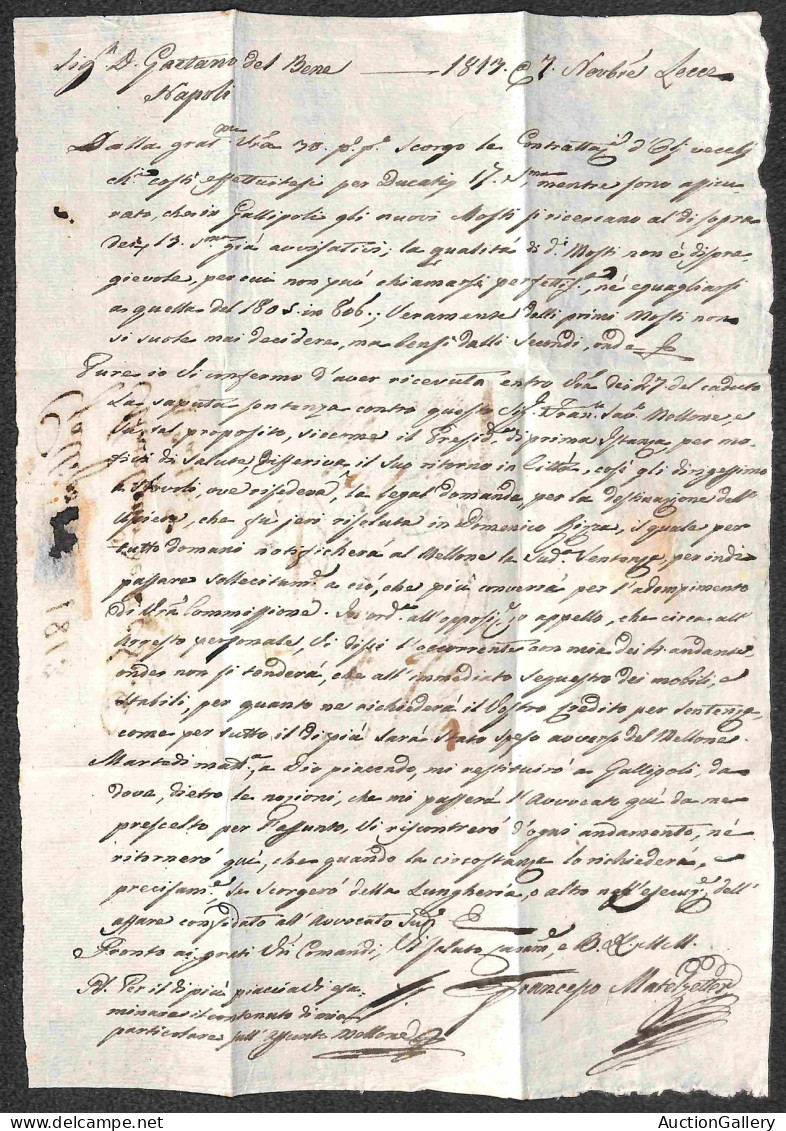 Sig.r D. Gaetano del Bene ——— 1813. 7. Novbre Lecce
Napoli
Dalla grat.ma Vr̃a 30. p.o p.o scorgo le Contrattaz.i d'Ogl vecchj
ch'costì effettuitesi per Ducati 17. Sma, mentre sono assicu-
rato, che in Gallipoli gli nuovi Mosti si ricercano al di sopra
dei 13. Sma già avvisativi; la qualità di d.i Mosti non è dispre-
gievole, per cui non può chiamarsi perfettis.a, nè eguagliarsi
a quella del 1805 in 806.; Veramente dalli primi Mosti non
si suole mai decidere, ma bensì dalli secondi, onde
Pure io Vi informo d'aver ricevuta entro Vr̃a dei 27. del caduto
la saputa sentenza contro questo Sig.r Fran.co Sav.o Mellone, e
su tal proposito, siccome il Presid.e di prima Istanza, per mo-
tivi di salute, differiva il suo ritorno in Città, così gli dirigessimo
a Novoli, ove risedeva, la legal domanda per la destinazione dell'
Usciere, che fù jeri risoluta in Domenico Rizza, il quale per
tutto domani notificherà al Mellone la Sud.a Sentenza, per indi
passare sollecitam.e a ciò, che più converrà per l'adempimento
di Vr̃a Commissione. In ord.e all'opposiz.e, o appello, che circa all'
Arresto personale, Vi dissi l'occorrente con mia dei ti andante
onde non si tenderà, che all'immediato sequestro dei mobili, e
stabili, per quanto ne richiederà il Vostro Credito per sentenza
come per tutto il di più sarà stato speso avverso del Mellone.
Martedi mat.a, a Dio piacendo, mi restituirò a Gallipoli, da
dove, dietro le nozioni, che mi passerà l'Avvocato quì da me
prescelto per l'assunto, Vi riscontrerò d'ogni andamento, nè
ritornerò quì, che quando la circostanza lo richiederà,
precisam.e se scorgerò della lungheria, o altro nell'esecuz.e dell'
affare confidato all'Avvocato Sud.o
Pronto ai grati Vr̃i Comandi, Vi saluto caram.e, e B. L. M. M.
Pd. Per il di più piaccia Vi esa- Francesco
minare il contenuto di mia
particolare sull'assunto Mellone
1813